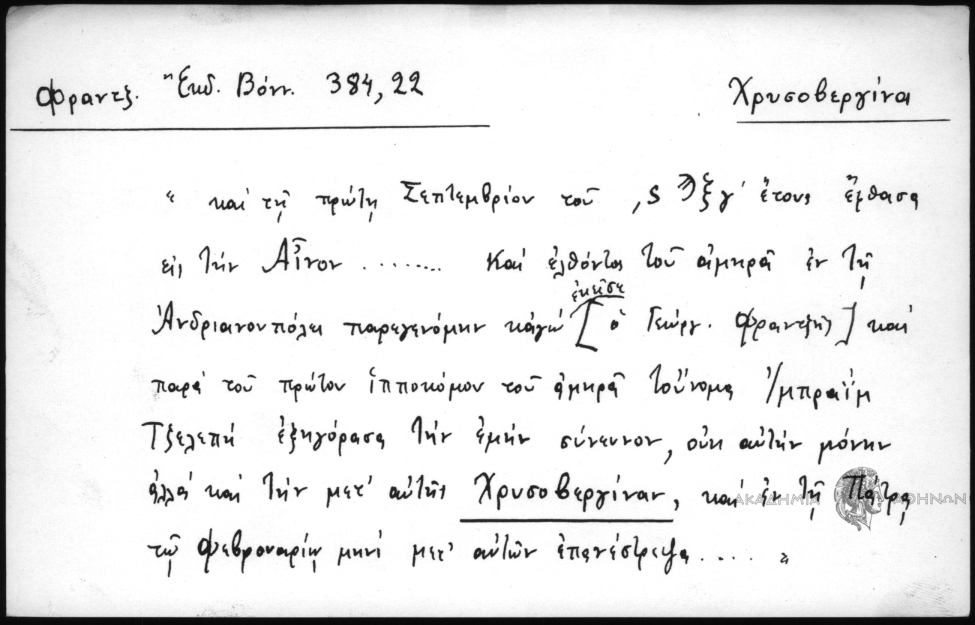 Φραντζ. Ἔκδ. Βόνν. 384,22
Χρυσοβεργίνα
" καὶ τῇ πρώτῃ Σεπτεμβρίου τοῦ ,ϛϠξγ' ἔτους ἔφθασα
εἰς τὴν Αἶνον ........ καὶ ἐλθόντος τοῦ ἀμηρᾶ ἐν τῇ
ἐκεῖσε
Ἀνδριανουπόλει παρεγενόμην κἀγὼ [ὁ Γεώργ. Φραντζῆς] καὶ
παρὰ τοῦ πρώτου ἱπποκόμου τοῦ ἀμηρᾶ τοὔνομα Ἰμπραῒμ
Τζελεπῆ ἐξηγόρασα τὴν ἐμὴν σύνευνον, οὐκ αὐτὴν μόνην
ἀλλὰ καὶ τὴν μετ' αὐτῆς Χρυσοβεργίναν, καὶ ἐν τῇ Πάτρᾳ
τῷ Φεβρουαρίῳ μηνὶ μετ' αὐτῶν ἐπανέστρεψα .... "
ΑΚΑΔΗΜΙΑ ΑΘΗΝΩΝ